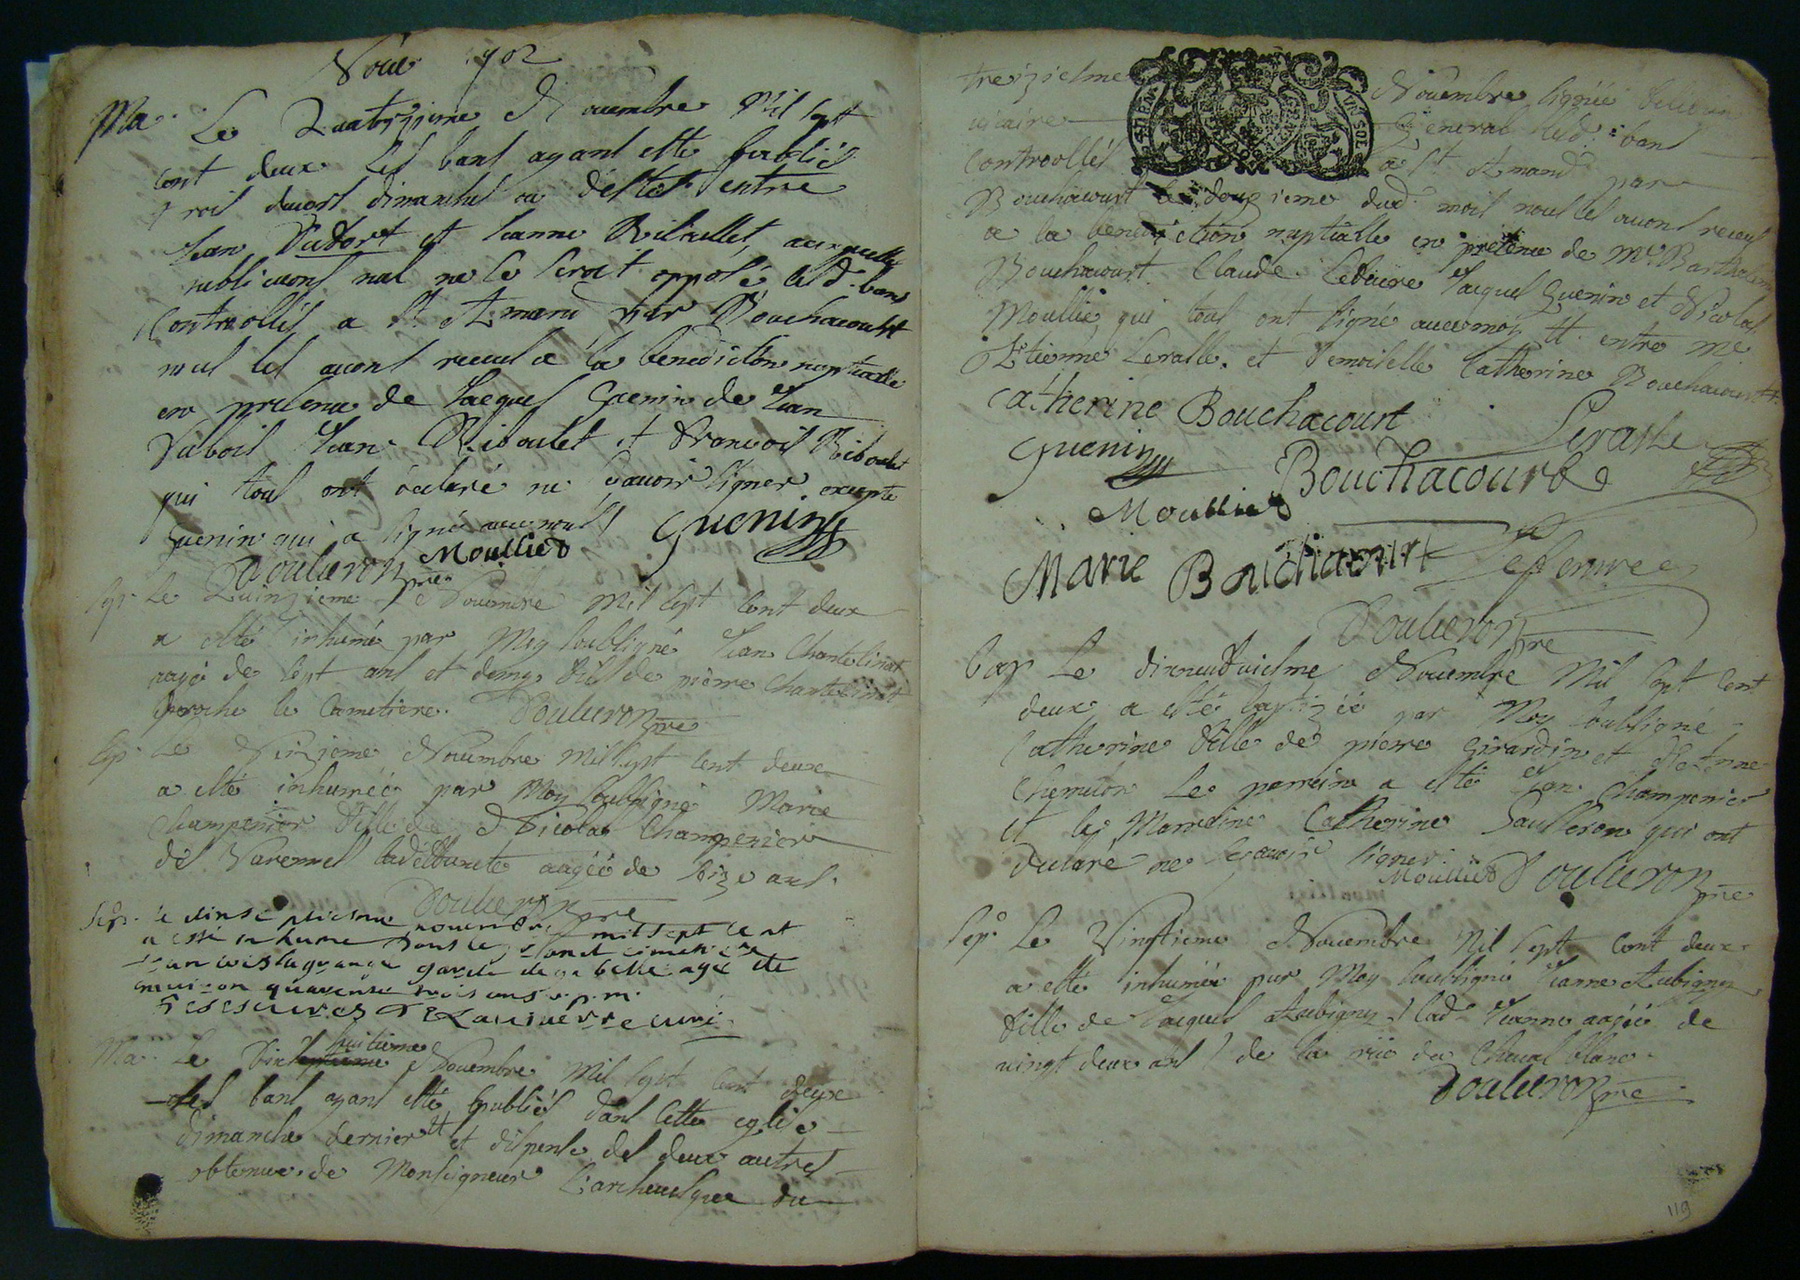 Noue 702
Ma. Le Quatrizieme Nouembre Mil sept
cent deux les bans ayant esté publiés
trois diuers dimanches ou festes entre
Jean Dubort et Jeanne auxquelles
publica͠ons nul ne se seroit opposé lesd. bans
Controollés a St Amand par Bouchacourt
nous les auons receus a la benediction nuptialle
en presence de Jacques Guenin de Jean
Dubois Jean Riboulet et Francois Riboulet
qui tous ont déclaré ne scauoir signer excepté
Guenin qui a signé auec nous Guenin
Douleron pre Moullied
Sep. Le Quinzieme Nouembre Mil sept Cent deux
a esté inhumé par Moy soubsigné Jean Chantelinat
aagé de sept ans et demy fils de pierre Chantelinat
proche le Cemetiere. Douleron pre
Sep. Le Sezieme Nouembre Mil sept Cent deux
a esté inhumée par Moy soubsigné Marie
Champenier fille de Nicolas Champenier
des Varennes ladeffuncte aagée de seize ans.
Douleron pre
Sep. le dinse nouembre mil sept cent
a esté inhume dans le grand cimetiere
francois lagrange garde de agé de
enuiron quarente trois ans
curé
Ma. Le Dixhuitieme Nouembre Mil sept Cent deux
les bans ayans esté publiés dans cette eglise
dimanche dernier et dispense des deux autres
obtenue de Monseigneur L'archeuesque du
treizielme Nouembre signée
vicaire General lesd. bans
Controollés a St Amand par
Bouchacourt le douzieme dud. mois nous les auons receus
a la benediction nuptialle en presence de Me Barthelemy
Bouchacourt Claude Lefebure Jacques Guenin et Nicolas
Moullié qui tous ont signé auec moy # entre me
Etienne Leralle et Demoiselle Catherine Bouchacourt #
Catherine Bouchacourt Leralle
Guenin Bouchacourt
Moullied
Marie Bouchacourt Lefebure
Douleron pre
bap Le dixneufuielme Nouembre Mil sept Cent
deux a esté baptizée par Moy soubsigné
Catherine fille de pierre Girardin et d'Etienne
Chemeton Le parrain a esté Jean Champenier
et la Marraine Catherine Saulleron qui ont
declaré ne scauoir signer.
Moullied Douleron pre
Sep. Le Vingtieme Nouembre Mil sept Cent deux
a esté inhumée par Moy soubsigné Jeanne Aubigny
fille de Jacques Aubigny lad. Jeanne aagée de
vingt deux ans de la rüe du Cheual blanc.
Douleron pre
119